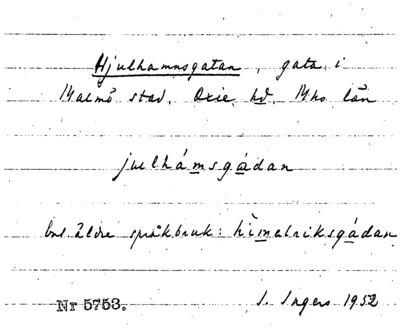 Hjulhamnsgatan, gata i
Malmö stad, Oxie hd, Mhs län
julhámsgádan
enl äldre språkbruk: hìmelriksgádan
Nr 5753. I. Ingers 1952